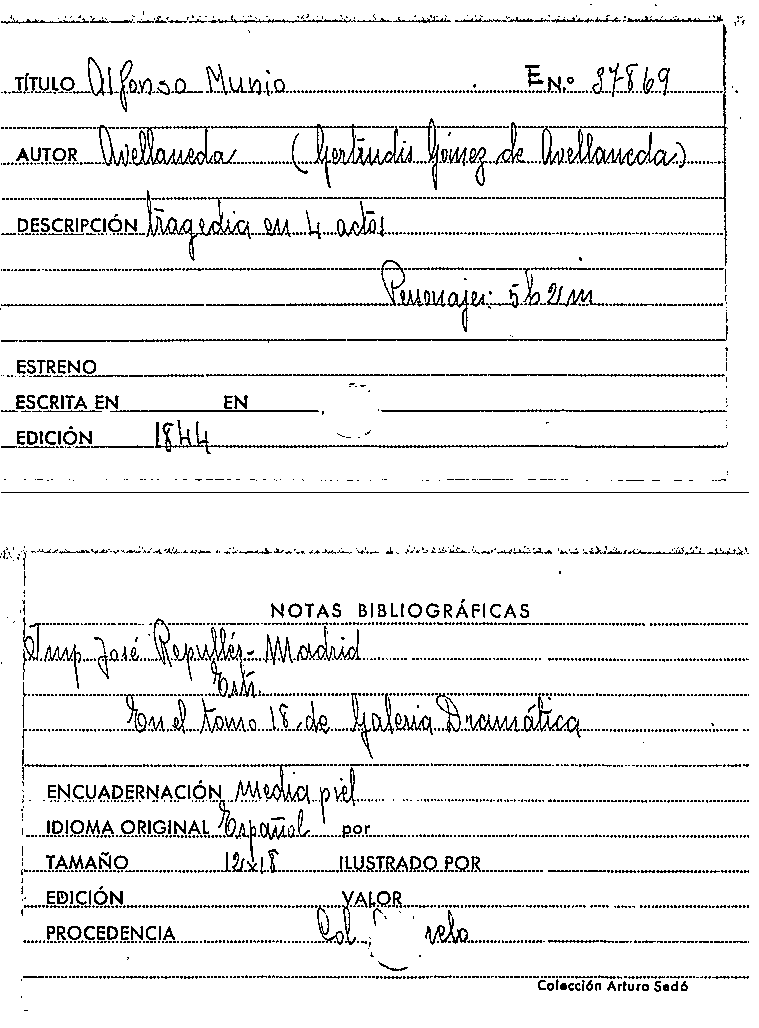 TÍTULO Alfonso Munio E N.º 37869
AUTOR Avellaneda (Gertrudis Gómez de Avellaneda)
DESCRIPCIÓN tragedia en 4 actos
Personajes: 5h 2m
ESTRENO
ESCRITA EN EN
EDICIÓN 1844
NOTAS BIBLIOGRÁFICAS
Imp José Repullés - Madrid
Estr.
En el tomo 18 de Galeria Dramática
ENCUADERNACIÓN media piel
IDIOMA ORIGINAL Español por
TAMAÑO 12x18 ILUSTRADO POR
EDICIÓN VALOR
PROCEDENCIA Col.
Colección Arturo Sedó